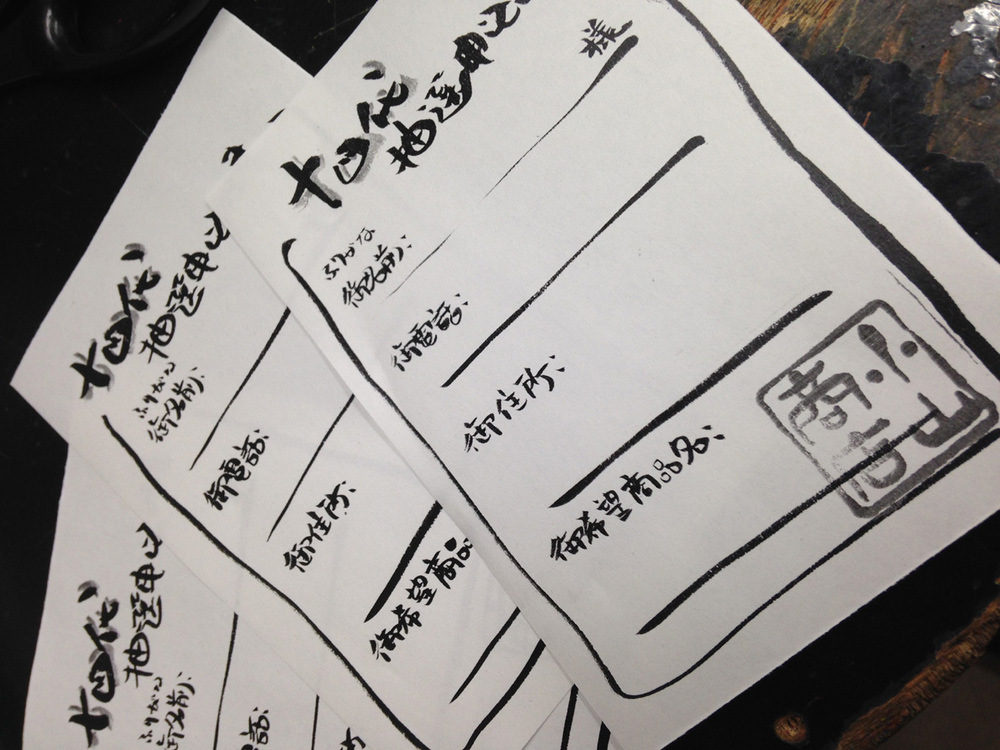 十四代
抽選申込
様
ふりがな
御名前:
御電話:
御住所:
御希望商品名:
小山
商店
十四代
抽選申込
ふりがな
御名前:
御電話:
御住所:
御希望商品
十四代
抽選申込
ふりがな
御名前:
御電話: